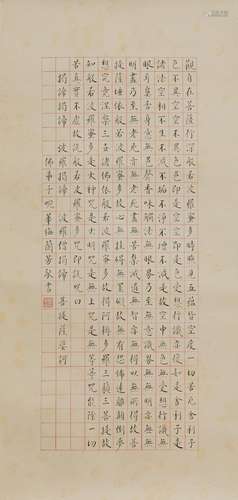 觀自在菩薩行深般若波羅蜜多時照見五蘊皆空度一切苦厄舍利子
色不異空空不異色色即是空空即是色受想行識亦復如是舍利子是
諸法空相不生不滅不垢不淨不增不減是故空中無色無受想行識無
眼耳鼻舌身意無色聲香味觸法無眼界乃至無意識界無無明亦無無
明盡乃至無老死亦無老死盡無苦集滅道無智亦無得以無所得故菩
提薩埵依般若波羅蜜多故心無罣礙無罣礙故無有恐怖遠離顛倒夢
想究竟涅槃三世諸佛依般若波羅蜜多故得阿耨多羅三藐三菩提故
知般若波羅蜜多是大神咒是大明咒是無上咒是無等等咒能除一切
苦真實不虛故說般若波羅蜜多咒即說咒曰
揭諦揭諦 波羅揭諦 波羅僧揭諦 菩提薩婆訶
佛弟子畹華梅蘭芳敬書